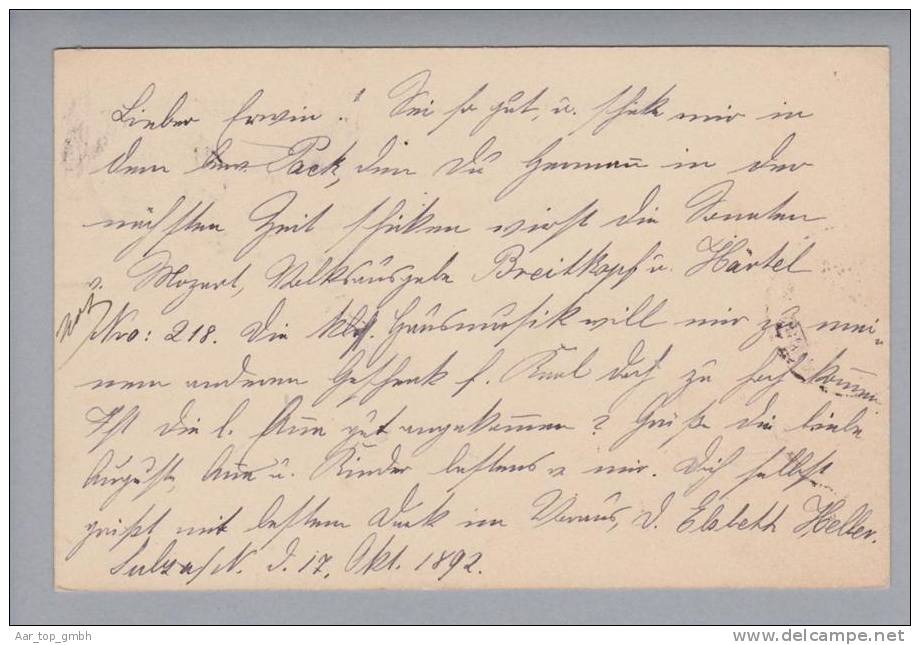 Lieber Erwin! Sei so gut, u. schike mir in
dem Pack, den Du Hermann in der
nächsten Zeit schiken wirst die Sonaten
v. Mozart, Volksausgabe Breitkopf u. Härtel
Nro: 218. Die Hausmusik will mir zu mei-
nem anderen Geschenk f. Karl doch zu hoch kommen.
Ist die l. Anna gut angekommen? Grüße die liebe
Auguste, Anna u. Kinder bestens v. mir. Dich selbst
grüßt mit bestem Dank im Voraus, D. Elsbeth Heller.
Sulz a/N. d. 17. Okt. 1892.
Aar_top_gmbh
www.delcampe.net